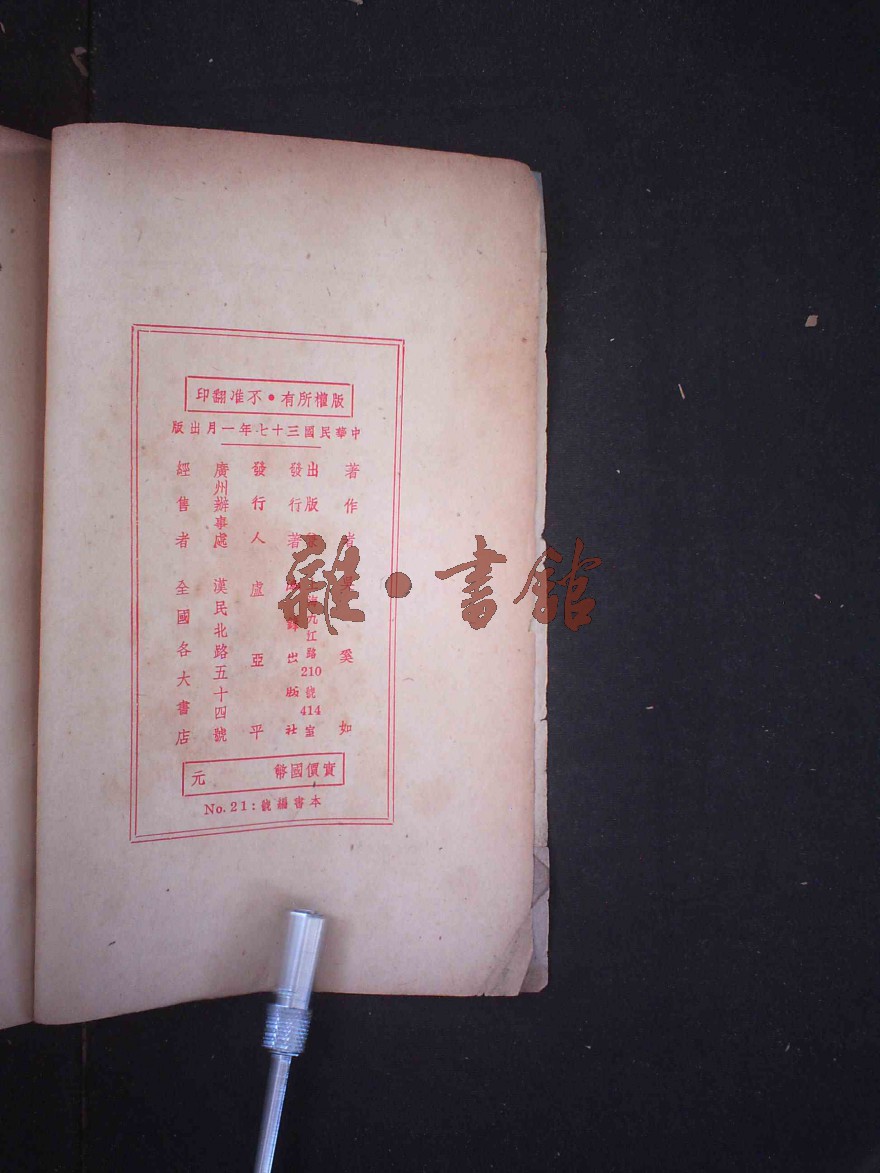 版權所有•不准翻印
中華民國三十七年一月出版
著作者 吳 奚如
出版 九江路210號414室
發行著 出版社
發行人 盧亞平
廣州辦事處 漢民北路五十四號
經售者 全國各大書店
實價國幣 元
本書編號:No.21
雜•書館